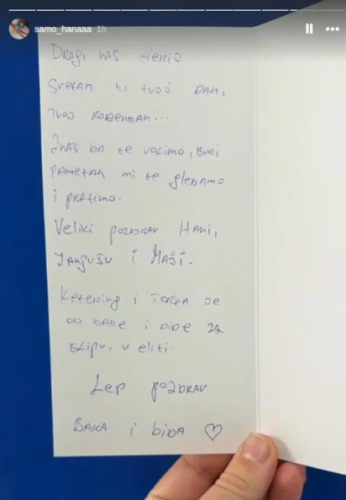 samo_hanaaa 1h
Dragi naš Henio
Sretan ti tvoj dan,
tvoj rođendan...
Znaš da te volimo, budi
pametan mi te gledamo
i pratimo.
Veliki pozdrav Hani,
i Maši.
Ketering i torta je
od bake i dide za
ekipu, u eliti.
Lep pozdrav
Baka i dida ♡